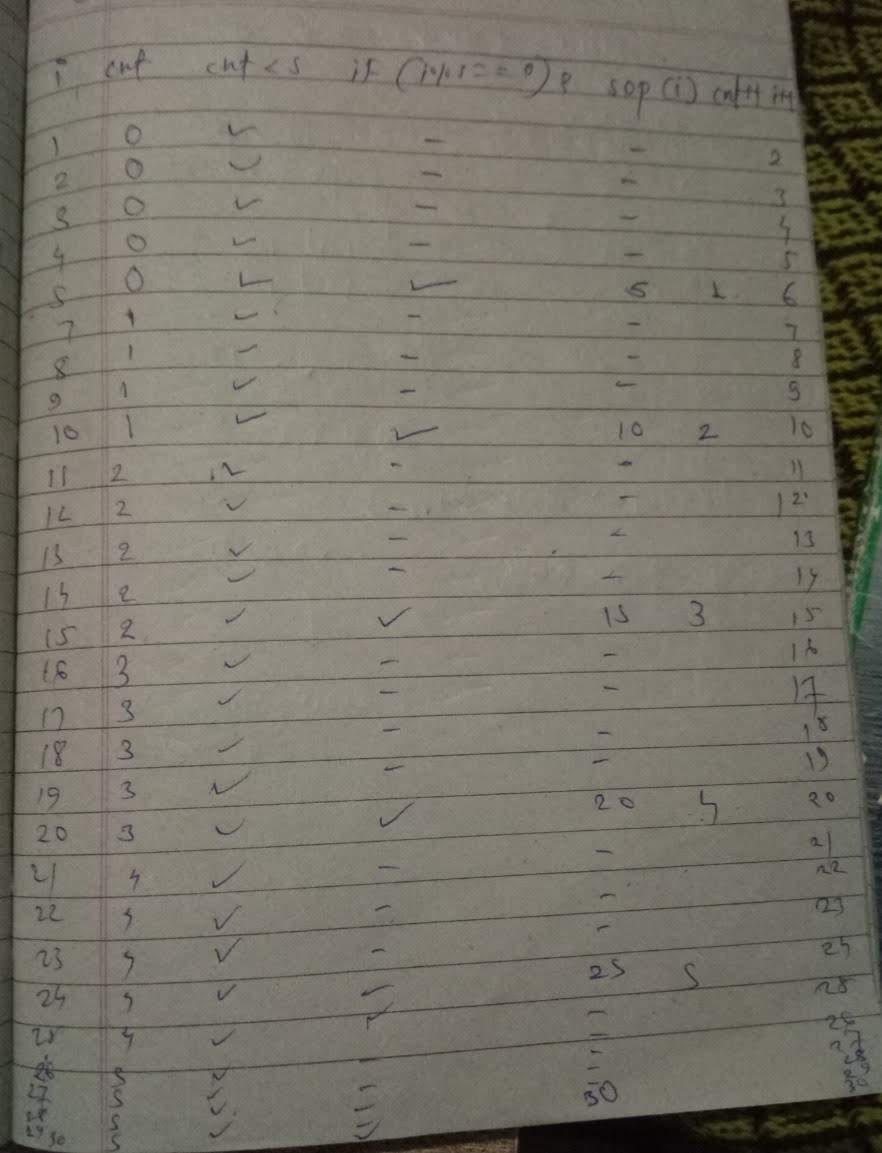 i cnt cnt < 5 if (i%5==0) sop (i) cnt++ i++
1 0 ✓ - - 2
2 0 ✓ - - 3
3 0 ✓ - - 4
4 0 ✓ - - 5
5 0 ✓ ✓ 5 1 6
7 1 ✓ - - 7
8 1 ✓ - - 8
9 1 ✓ - - 9
10 1 ✓ ✓ 10 2 10
11 2 ✓ - - 11
12 2 ✓ - - 12
13 2 ✓ - - 13
14 2 ✓ - - 14
15 2 ✓ ✓ 15 3 15
16 3 ✓ - - 16
17 3 ✓ - - 17
18 3 ✓ - - 18
19 3 ✓ - - 19
20 3 ✓ ✓ 20 4 20
21 4 ✓ - - 21
22 4 ✓ - - 22
23 4 ✓ - - 23
24 4 ✓ - 25 5 24
25 4 ✓ ✓ - 25
5 ✓ - -
27 5 ✓ - -
5 ✓ - 30
30 5 ✓